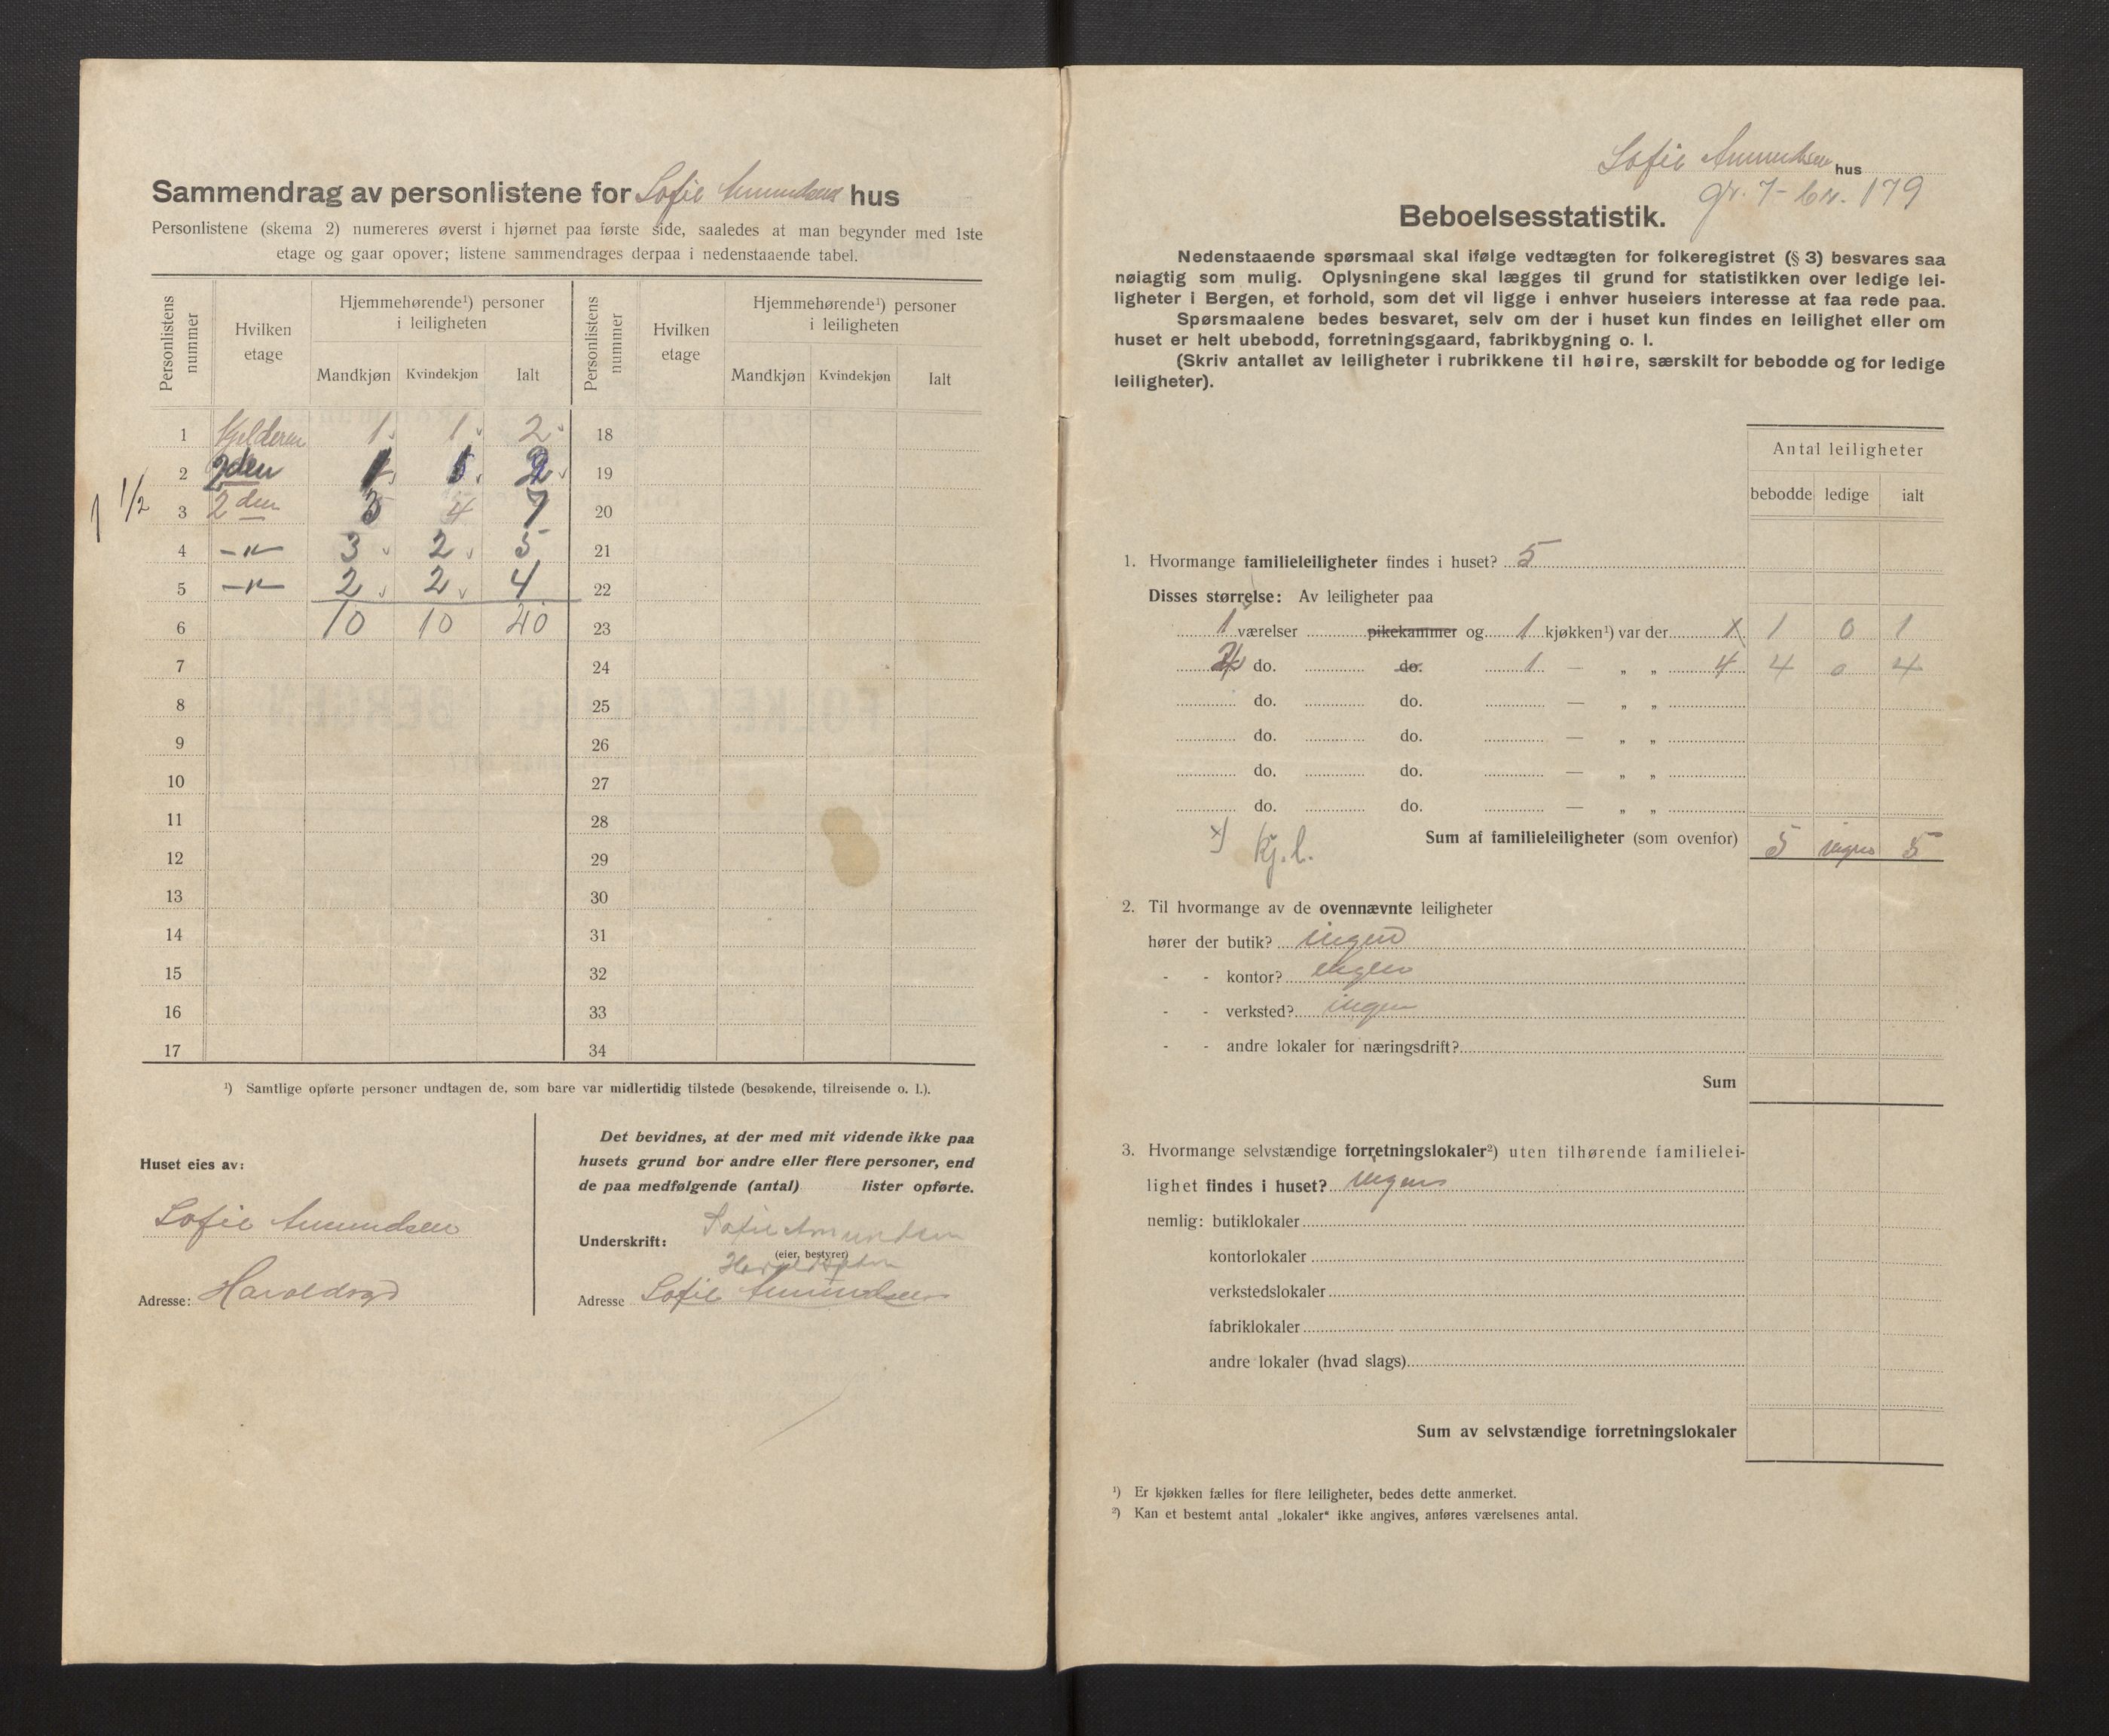 Sammendrag av personlistene for Sofie Amundsens hus
Personlistene (skema 2) numereres øverst i hjørnet paa første side, saaledes at man begynder med 1ste
etage og gaar opover; listene sammendrages derpaa i nedenstaaende tabel.
Personlistens nummer
Hvilken etage
Hjemmehørende¹) personer i leiligheten
Mandkjøn Kvindekjøn Ialt
Personlistens nummer
Hvilken etage
Hjemmehørende¹) personer i leiligheten
Mandkjøn Kvindekjøn Ialt
1 Kjelderen 1 1 2 18
2 2den 1 1 2 19
1 1/2
3 2den 3 4 7 20
4 -"- 3 2 5 21
5 -"- 2 2 4 22
6 10 10 20 23
7 24
8 25
9 26
10 27
11 28
12 29
13 30
14 31
15 32
16 33
17 34
¹) Samtlige opførte personer undtagen de, som bare var midlertidig tilstede (besøkende, tilreisende o. l.).
Huset eies av:
Sofie Amundsen
Adresse: Haroldsgd
Det bevidnes, at der med mit vidende ikke paa
husets grund bor andre eller flere personer, end
de paa medfølgende (antal) lister opførte.
Underskrift: Sofie Amundsen
(eier, bestyrer)
Adresse Sofie Amundsen
Sofie Amundsen hus
gr. 7 - br. 179
Beboelsesstatistik.
Nedenstaaende spørsmaal skal ifølge vedtægten for folkeregistret (§ 3) besvares saa
nøiagtig som mulig. Oplysningene skal lægges til grund for statistikken over ledige lei-
ligheter i Bergen, et forhold, som det vil ligge i enhver huseiers interesse at faa rede paa.
Spørsmaalene bedes besvaret, selv om der i huset kun findes en leilighet eller om
huset er helt ubebodd, forretningsgaard, fabrikbygning o. l.
(Skriv antallet av leiligheter i rubrikkene til høire, særskilt for bebodde og for ledige
leiligheter).
Antal leiligheter
bebodde ledige ialt
1. Hvormange familieleiligheter findes i huset? 5
Disses størrelse: Av leiligheter paa
1 værelser pikekammer og 1 kjøkken¹) var der x 1 0 1
2 do. do. 1 — „ „ 4 4 0 4
do. do. — „ „
do. do. — „ „
do. do. — „ „
do. do. — „ „
x) kj.l.
Sum af familieleiligheter (som ovenfor) 5 ingen 5
2. Til hvormange av de ovennævnte leiligheter
hører der butik? ingen
- - kontor? ingen
- - verksted? ingen
- - andre lokaler for næringsdrift?
Sum
3. Hvormange selvstændige forretningslokaler²) uten tilhørende familielei-
lighet findes i huset? ingen
nemlig: butiklokaler
kontorlokaler
verkstedslokaler
fabriklokaler
andre lokaler (hvad slags)
Sum av selvstændige forretningslokaler
¹) Er kjøkken fælles for flere leiligheter, bedes dette anmerket.
²) Kan et bestemt antal „lokaler" ikke angives, anføres værelsenes antal.